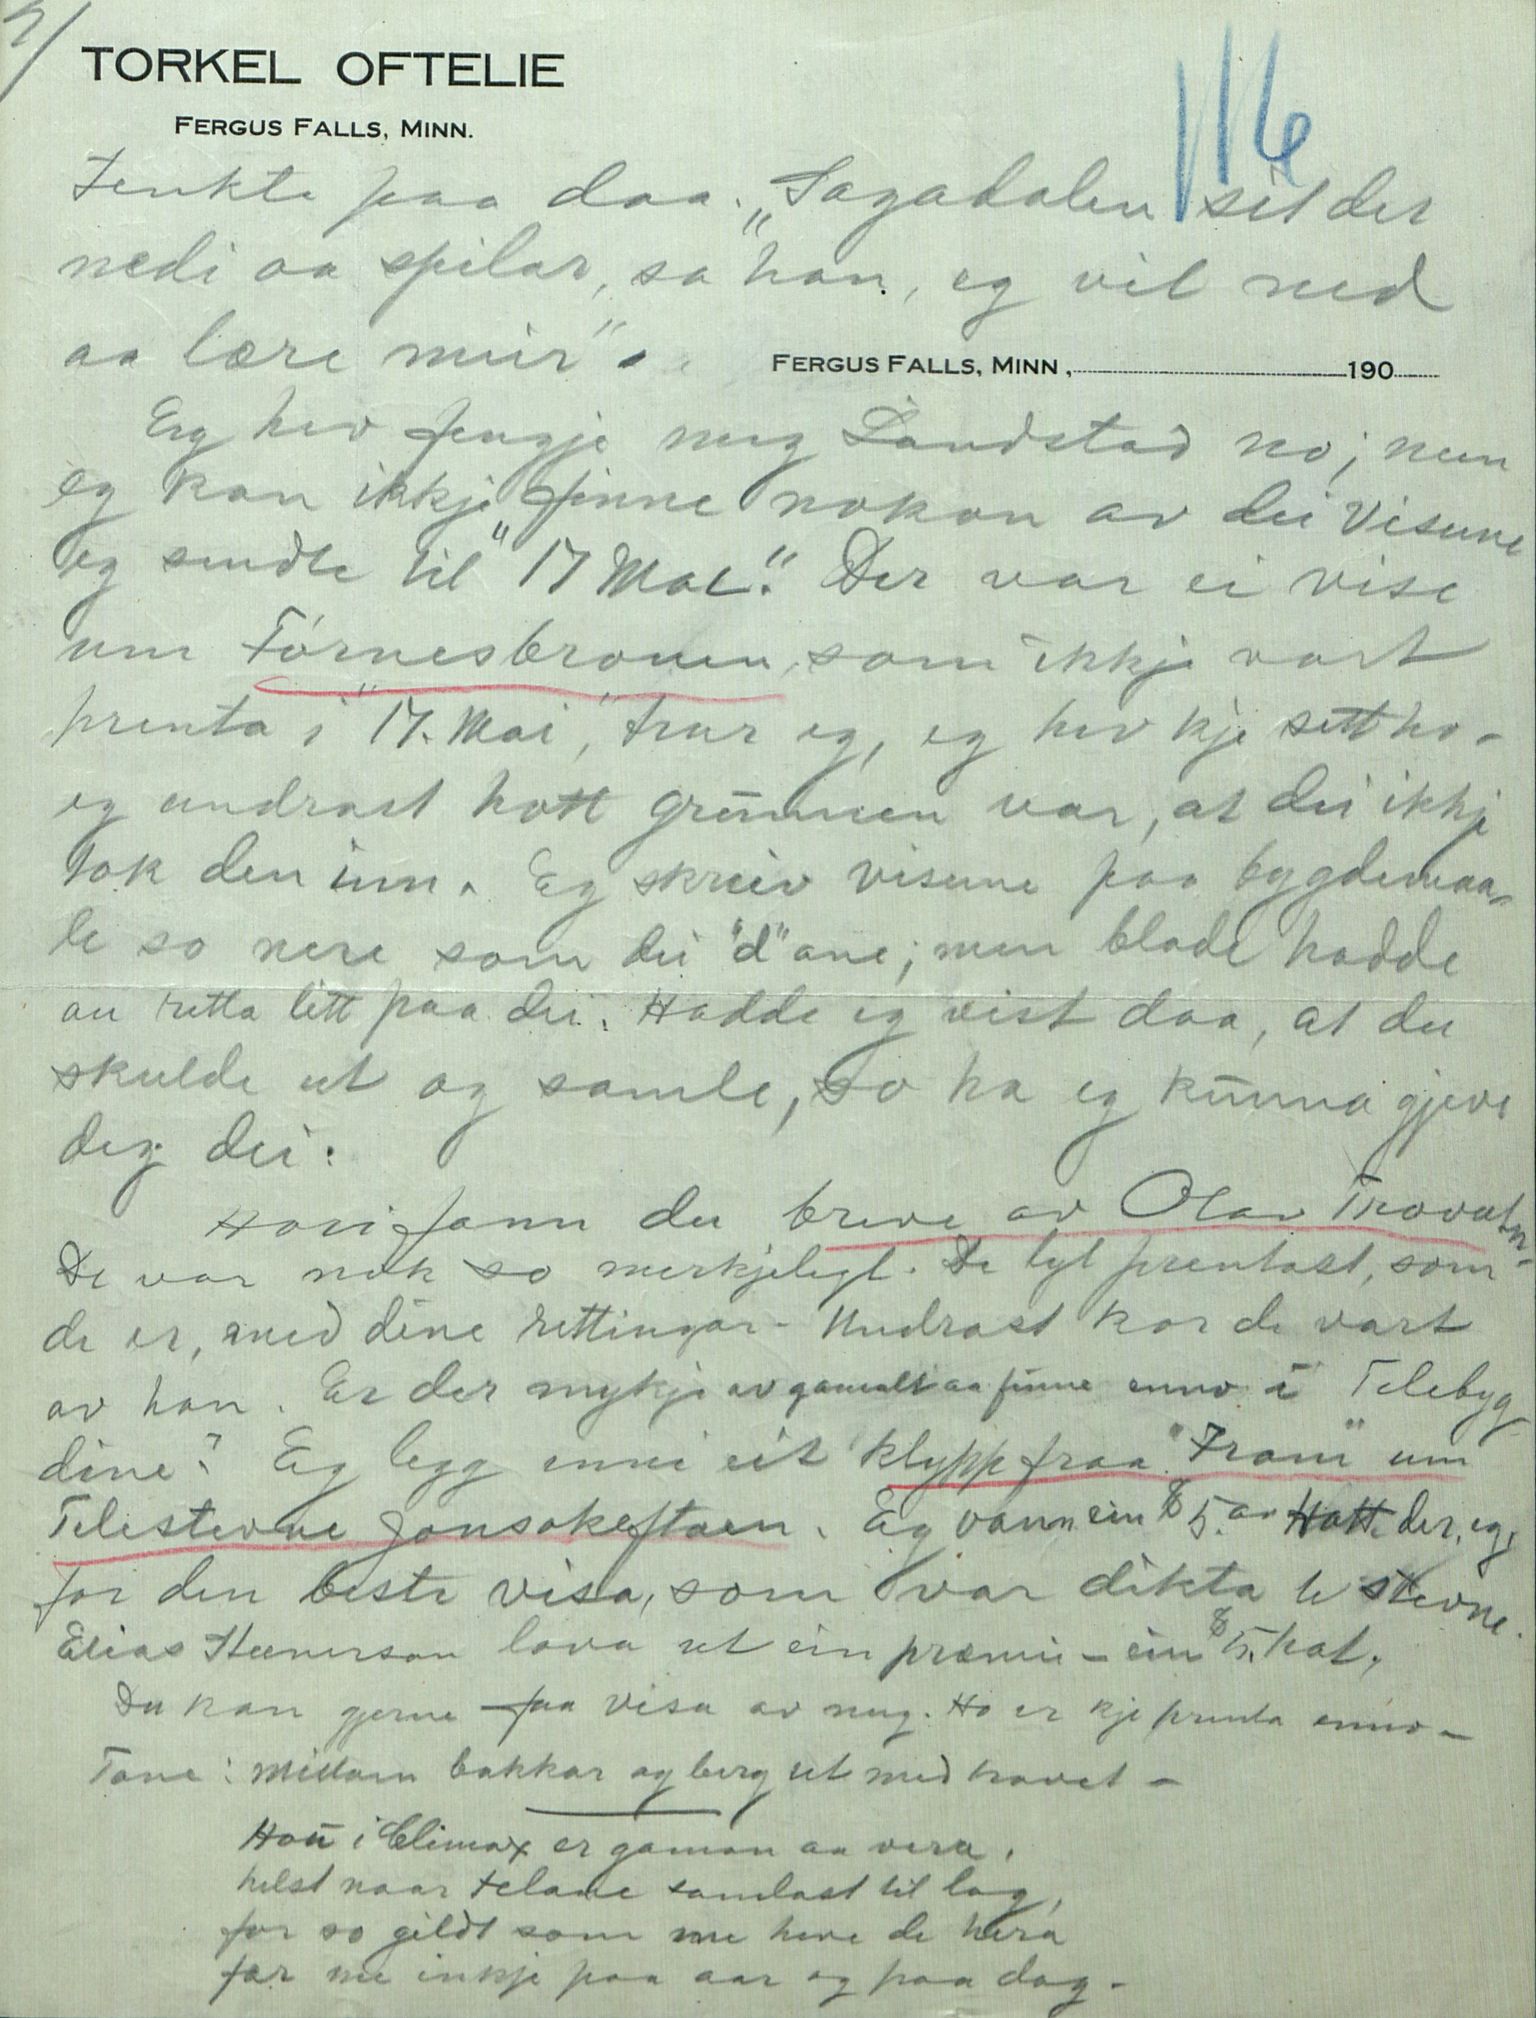 2/
TORKEL OFTELIE
FERGUS FALLS, MINN.
116
Tenkte paa daa. "Sagadalen sit der
nedi aa spilar, sa han, eg vil ned
aa lære meir".
FERGUS FALLS, MINN, 190
Eg hev fengje meg Landstad no; men
eg kan ikkje finne nokon av dei visune
eg sendte til "17 Mai." Der var ei vise
um Fórnesbronen, som ikkje vart
prenta i "17. Mai", trur eg, eg hev kje sett ho -
eg undrast hott grunnen var, at dei ikkje
tok den inn. Eg skreiv visune paa bygdemaa-
le so nere som dei "d" ane; men blade hadde
au retta litt paa dei. Hadde eg vist daa, at du
skulde ut og samle, so ha eg kunna gjeve
deg dei.
Hori fann du breve av Olav Trovatn
De var nok so merkjeligt. De lyt prentast, som
de er, med dine rettingar - Undrast kor de vart
av han. Er der mykje av gamalt aa finne enno i Telebyg
dine? Eg legg enni eit klypp fraa "Fram" um
Telestevne Jonsokeftaen. Eg vann ein $5. ar Hatt der, eg,
for den beste visa, som var dikta te stevne.
Elias Steenerson lova ut ein præmie - ein $5. hat.
Du kan gjerne faa visa av meg. Ho er kje prenta enno -
Tone: Millom bakkar og berg ut med havet -
Hou i Climax er gaman aa vera,
helst naar telane samlast til lag,
for so gildt som me heve de hera
fær me inkje paa aar og paa dag -